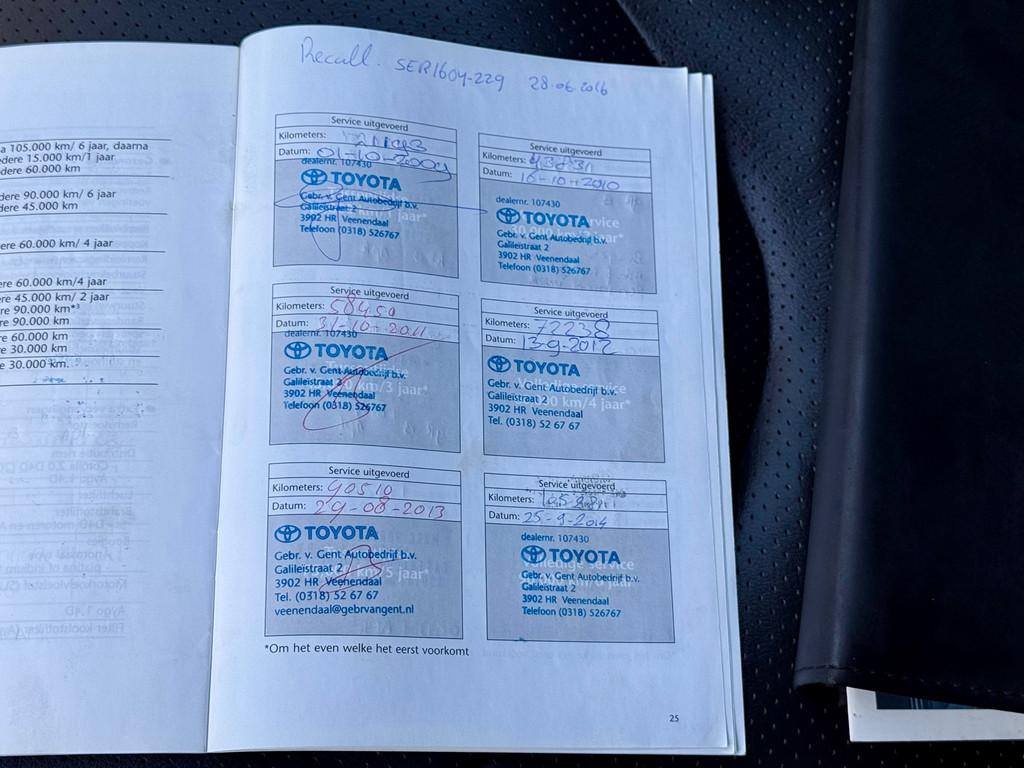 a 105.000 km/ 6 jaar, daarna
edere 15.000 km/1 jaar
dere 60.000 km
dere 90.000 km/ 6 jaar
dere 45.000 km
ere 60.000 km/ 4 jaar
ere 60.000 km/4 jaar
ere 45.000 km/ 2 jaar
re 90.000 km*³
re 90.000 km
re 60.000 km
re 30.000 km
e 30.000 km.
Recall. SER1604-229 28.06.2016
Service uitgevoerd
Kilometers:
Datum: 01-10-2009
dealernr. 107430
TOYOTA
Gebr. v. Gent Autobedrijf b.v.
Galileïstraat 2 jaar*
3902 HR Veenendaal
Telefoon (0318) 526767
Service uitgevoerd
Kilometers:
Datum: 16-10-2010
dealernr. 107430
TOYOTA
Gebr. v. Gent Autobedrijf b.v.
Galileïstraat 2
3902 HR Veenendaal
Telefoon (0318) 526767
Service uitgevoerd
Kilometers: 58450
Datum: 31-10-2011
dealernr. 107430
TOYOTA
Gebr. v. Gent Autobedrijf b.v.
Galileïstraat 2 km/3 jaar*
3902 HR Veenendaal
Telefoon (0318) 526767
Service uitgevoerd
Kilometers: 72238
Datum: 13-9-2012
TOYOTA
Gebr. v. Gent Autobedrijf b.v.
Galileïstraat 2 km/4 jaar*
3902 HR Veenendaal
Tel. (0318) 52 67 67
Service uitgevoerd
Kilometers: 90510
Datum: 29-08-2013
TOYOTA
Gebr. v. Gent Autobedrijf b.v.
Galileïstraat 2
3902 HR Veenendaal km/5 jaar*
Tel. (0318) 52 67 67
veenendaal@gebrvangent.nl
Service uitgevoerd
Kilometers:
Datum: 25-9-2014
dealernr. 107430
TOYOTA
Volledige service
Gebr. v. Gent Autobedrijf b.v.
Galileïstraat 2
3902 HR Veenendaal
Telefoon (0318) 526767
*Om het even welke het eerst voorkomt
25